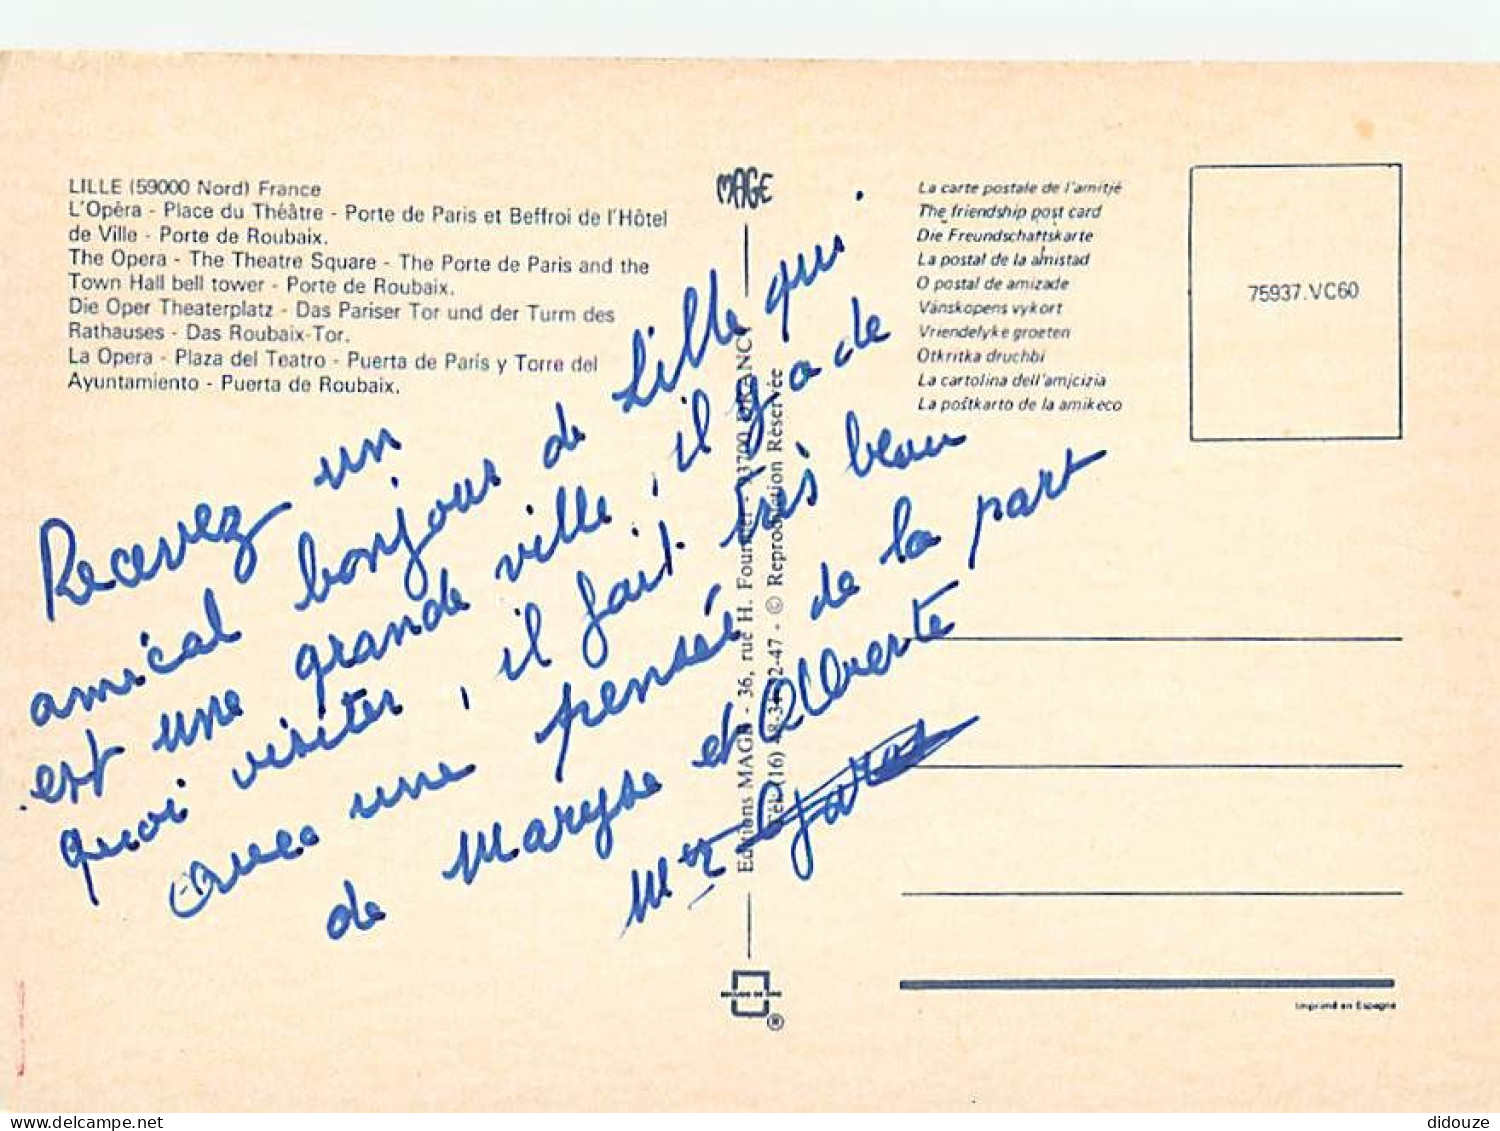 LILLE (59000 Nord) France
L'Opéra - Place du Théâtre - Porte de Paris et Beffroi de l'Hôtel
de Ville - Porte de Roubaix.
The Opera - The Theatre Square - The Porte de Paris and the
Town Hall bell tower - Porte de Roubaix.
Die Oper Theaterplatz - Das Pariser Tor und der Turm des
Rathauses - Das Roubaix-Tor.
La Opera - Plaza del Teatro - Puerta de París y Torre del
Ayuntamiento - Puerta de Roubaix.
Recevez un
amical bonjour de Lille qui
est une grande ville, il y a de
quoi visiter, il fait très beau
Avec une pensée de la part
de Maryse et Alberte
MAGE
Editions MAGE - 36, rue H. Fournier - 93700 DRANCY
Tél. (16) 48-31-32-47 - © Reproduction Réservée
La carte postale de l'amitjé
The friendship post card
Die Freundschaftskarte
La postal de la amistad
O postal de amizade
Vänskopens vykort
Vriendelyke groeten
Otkritka druchbi
La cartolina dell'amjcizia
La poŝtkarto de la amikeco
75937.VC60
ESCUDO DE ORO
®
Imprimé en Espagne
didouze